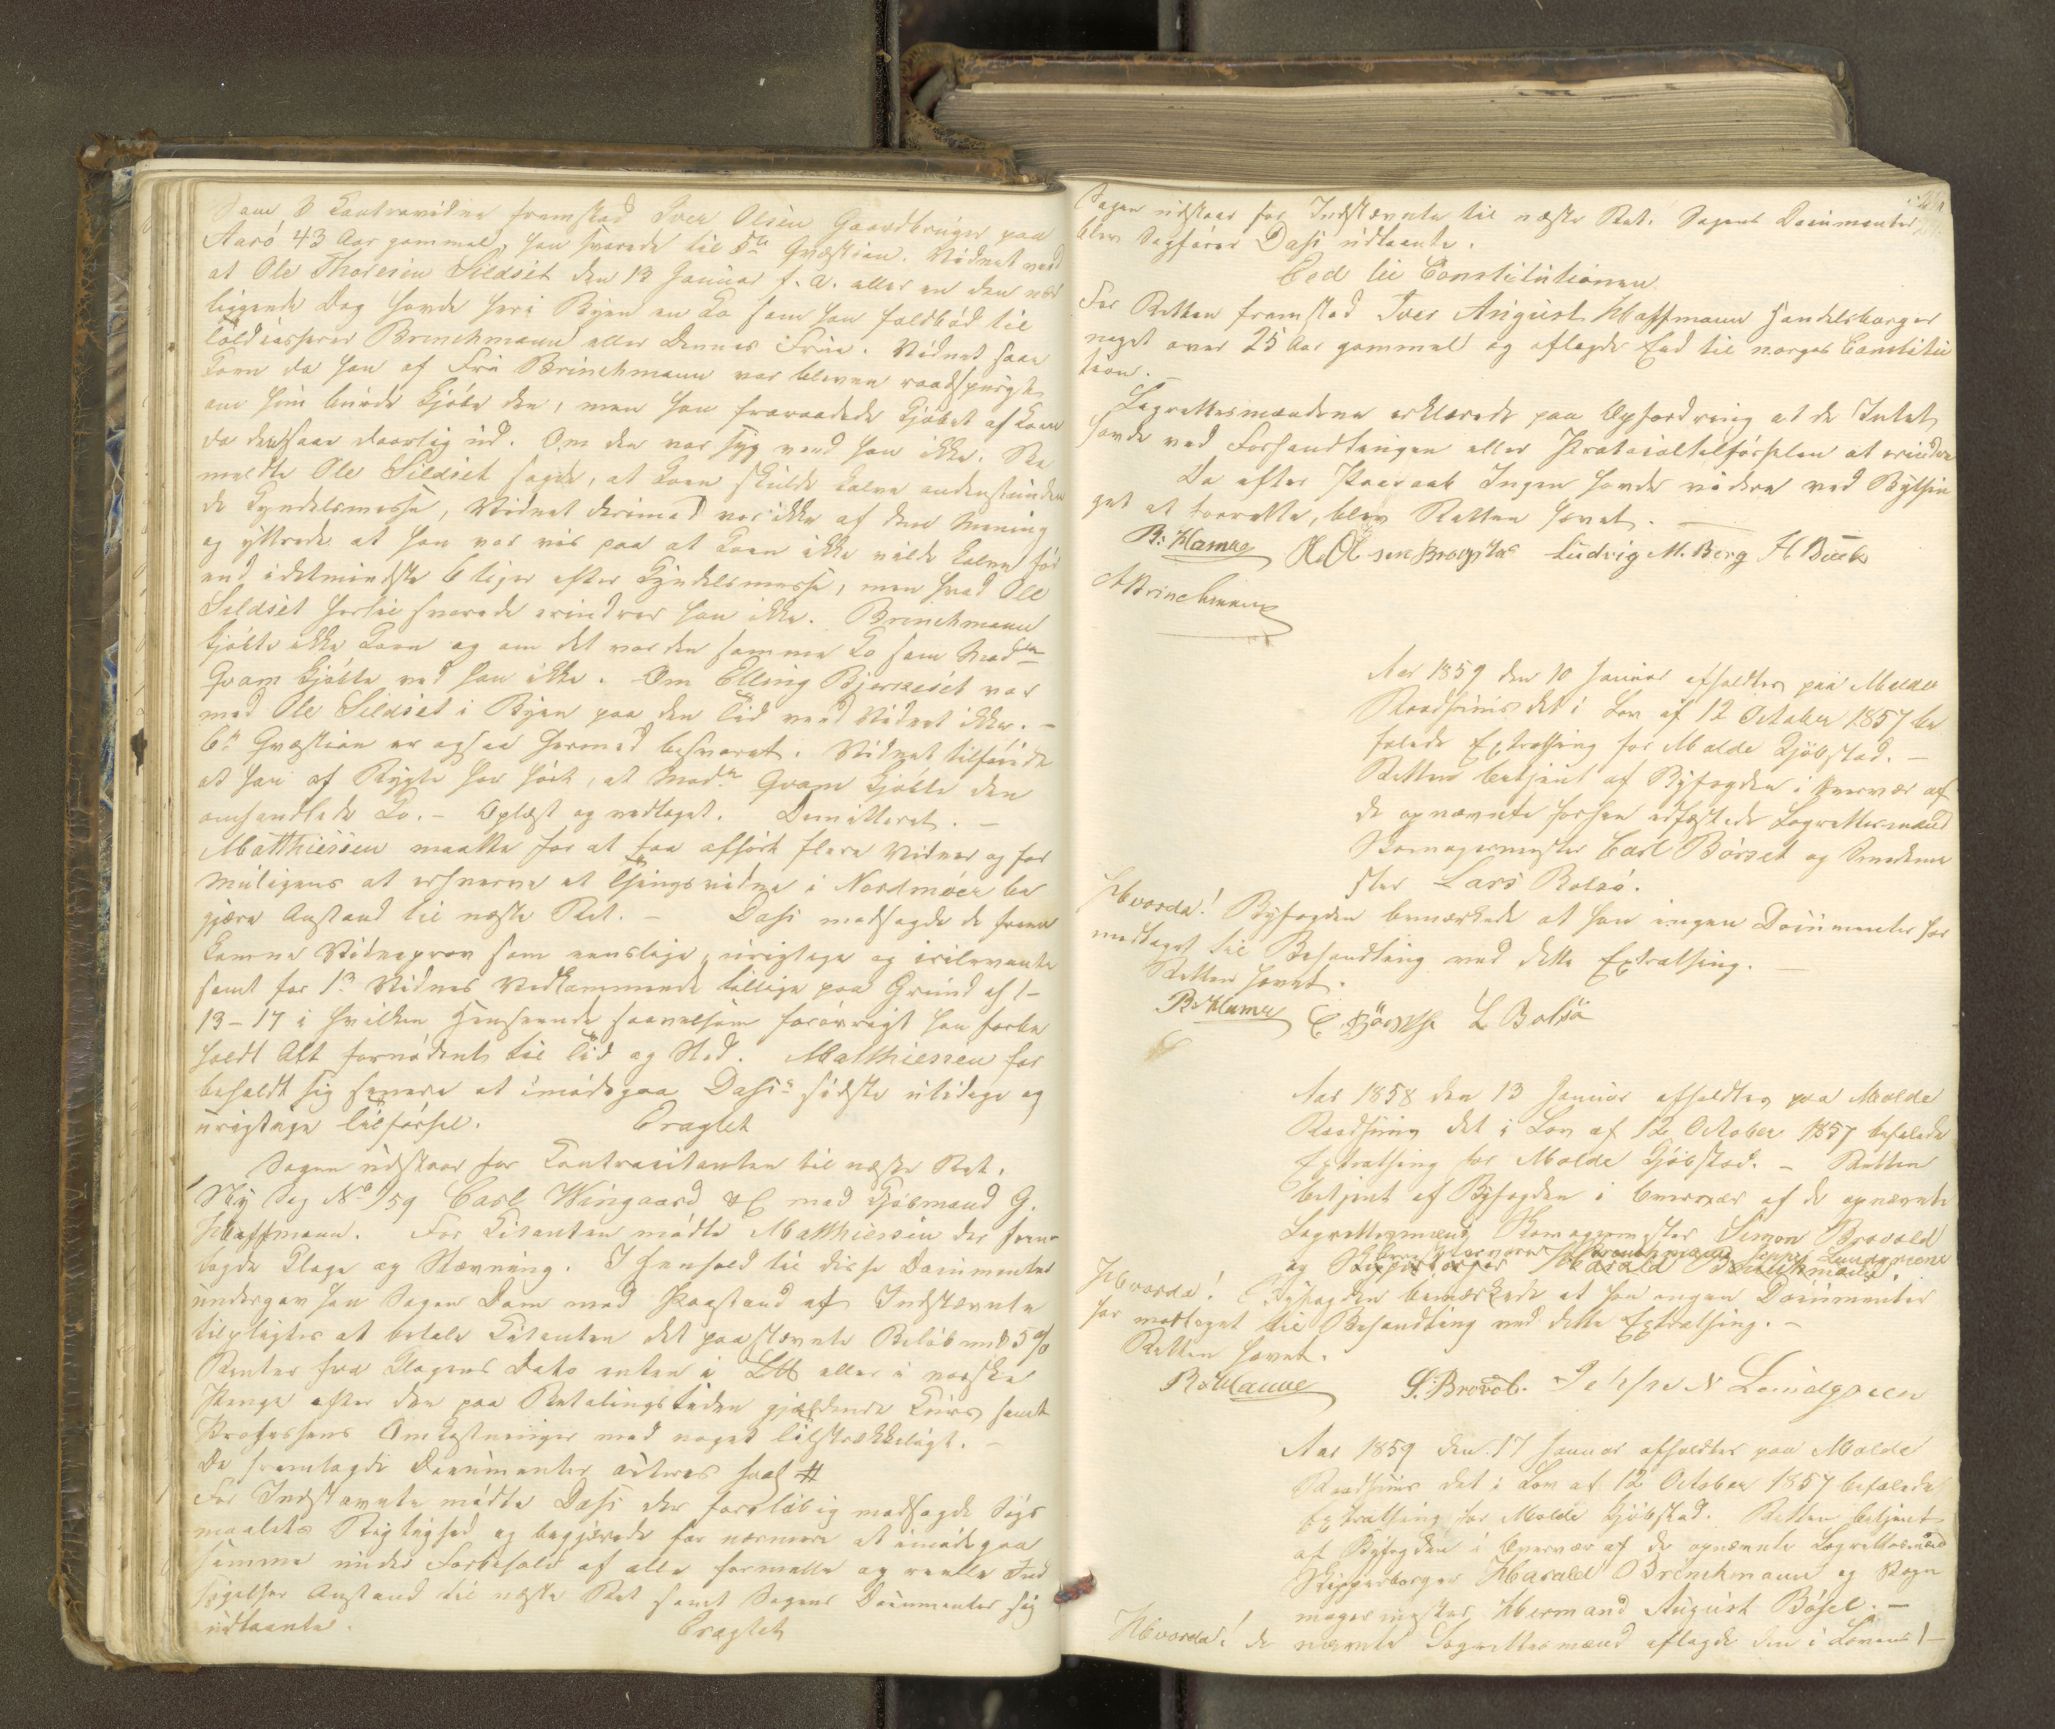 Som 3 Contravidne fremstod Iver Olsen Gaardbruger paa
Aarö 43 Aar gammel, han svarede til 5te Qvæstion. Vidnet veed
at Ole Thoresen Sildset den 13 Januar f. A. eller en den nær
liggende Dag havde her i Byen en Ko som han falbød til
Toldcasserer Brinchmann eller dennes Frue. Vidnet saae
Koen da han af Fru Brinchmann var bleven raadspurgt
om hun burde kjöbe den, men han fraraadede Kjöbet af Koen
da den saae daarlig ud. Om den var syg veed han ikke. Be
meldte Ole Sildset sagde, at Koen skulde kalve
Kyndelsmesse, Vidnet derimod var ikke af den Mening
og yttrede at han var vis paa at Koen ikke vilde kalve för
end idetmindste 6 Uger efter Kyndelsmesse, men hvad Ole
Sildset hertil svarede erindrer han ikke. Brinchmann
kjöbte ikke Koen og om det var den samme Ko som Madm
Qvam kjöbte ved han ikke. Om Elling Bjerkeset var
med Ole Sildset i Byen paa den Tid veed Vidnet ikke. –
6te Qvæstion er ogsaa hermed besvaret. Vidnet tilföiede
at han af Rygte har hört, at Madm Qvam kjöbte den
omhandlede Ko. – Oplæst og vedtaget. Demitteret. –
Matthiessen maatte for at faa afhört flere Vidner og for
muligens at erhverve et Thingsvidne i Nordmöer be
gjære Anstand til næste Ret. – Dahl modsagde de frem
komne Vidneprov som uenslige, urigtige og irelevante
samt for 1ste Vidnes Vedkommende tillige paa Grund af 1–
13–17 i hvilken Henseende saavelsom forövrigt han forbe
holdt Alt fornödent til Tid og Sted. Matthiessen for
beholdt sig senere at imödegaa Dahls sidste utidige og
urigtige Tilförsel. Eragtet
Sagen udstaar for Contracitanten til næste Ret.
Ny Sag No 1/59 Carl Wingaard & C mod Kjöbmand G.
Hoffmann. For Citanten mödte Matthiessen der frem-
lagde Klage og Stævning. I Henhold til disse Documenter
undergav han Sagen Dom med Paastand at Indstævnte
tilpligtes at betale Citanten det paastævnte Belöb med 5 %
Renter fra Klagens Dato enten i eller i norske
Penge efter den paa Betalingstiden gjældende Kurs samt
Processens Omkostninger med noget Tilstrækkeligt. –
De fremlagte Documenter acteres saal #
For Indstævnte mödte Dahl der foreløbig modsagde Sögs
maalets Rigtighed og begjærede for nærmere at imödegaa
samme under Forbehold af alle formelle og reelle Ind
sigelser Anstand til næste Ret samt Sagens Documenter sig
udlaante. Eragtet
Sagen udstaar for Indstævnte til næste Ret. Sagens Documenter
blev Sagförer Dahl udlaante.
Eed til Constitutionen
For Retten fremstod Iver August Hoffmann Handelsborger
noget over 25 Aar gammel og aflagde Eed til Norges Constitu
tion. –
Lagrettesmændene erklærede paa Opfordring at de Intet
havde ved Forhandlingen eller Protocoltilförselen at erindre
Da efter Paaraab Ingen havde videre ved Bythin
get at forrette, blev Retten hævet. –
Ludvig M. Berg H. Buck
A Brinchmann
Aar 1859 den 10 Januar afholdtes paa Molde
Raadhuus det i Lov af 12 October 1857 be
falede Extrathing for Molde Kjöbstad. –
Retten betjent af Byfogden i Overvær af
de opnævnte forhen edfæstede Lagrettesmænd
Skomagermester Carl Börset og Smedeme
ster Lars Bolsö.
Hvorda! Byfogden bemærkede at han ingen Documenter har
modtaget til Behandling ved dette Extrathing. –
Retten hævet.
L Bolsö
Aar 1858 den 13 Januar afholdtes paa Molde
Raadhuus det i Lov af 12 October 1857 befalede
Extrathing for Molde Kjöbstad. – Retten
betjent af Byfogden i Overvær af de opnævnte
Lagrettesmænd Skomagermester Simon Brovold
og Skipperborger Harald Brinchmann
Hvorda! Byfogden bemærkede at han ingen Documenter
har modtaget til Behandling ved dette Extrathing. –
Retten hævet.
S. Brovol. N Lundgreen
Aar 1859 den 17 Januar afholdtes paa Molde
Raadhuus det i Lov af 12 October 1857 befalede
Extrathing for Molde Kjöbstad. Retten betjent
af Byfogden i Overvær af de opnævnte Lagrettesmænd
Skipperborger Harald Brinchmann og Skom
magermester Hermand August Bösel. –
Hvorda! de nævnte Lagrettesmænd aflagde den i Lovens 1–